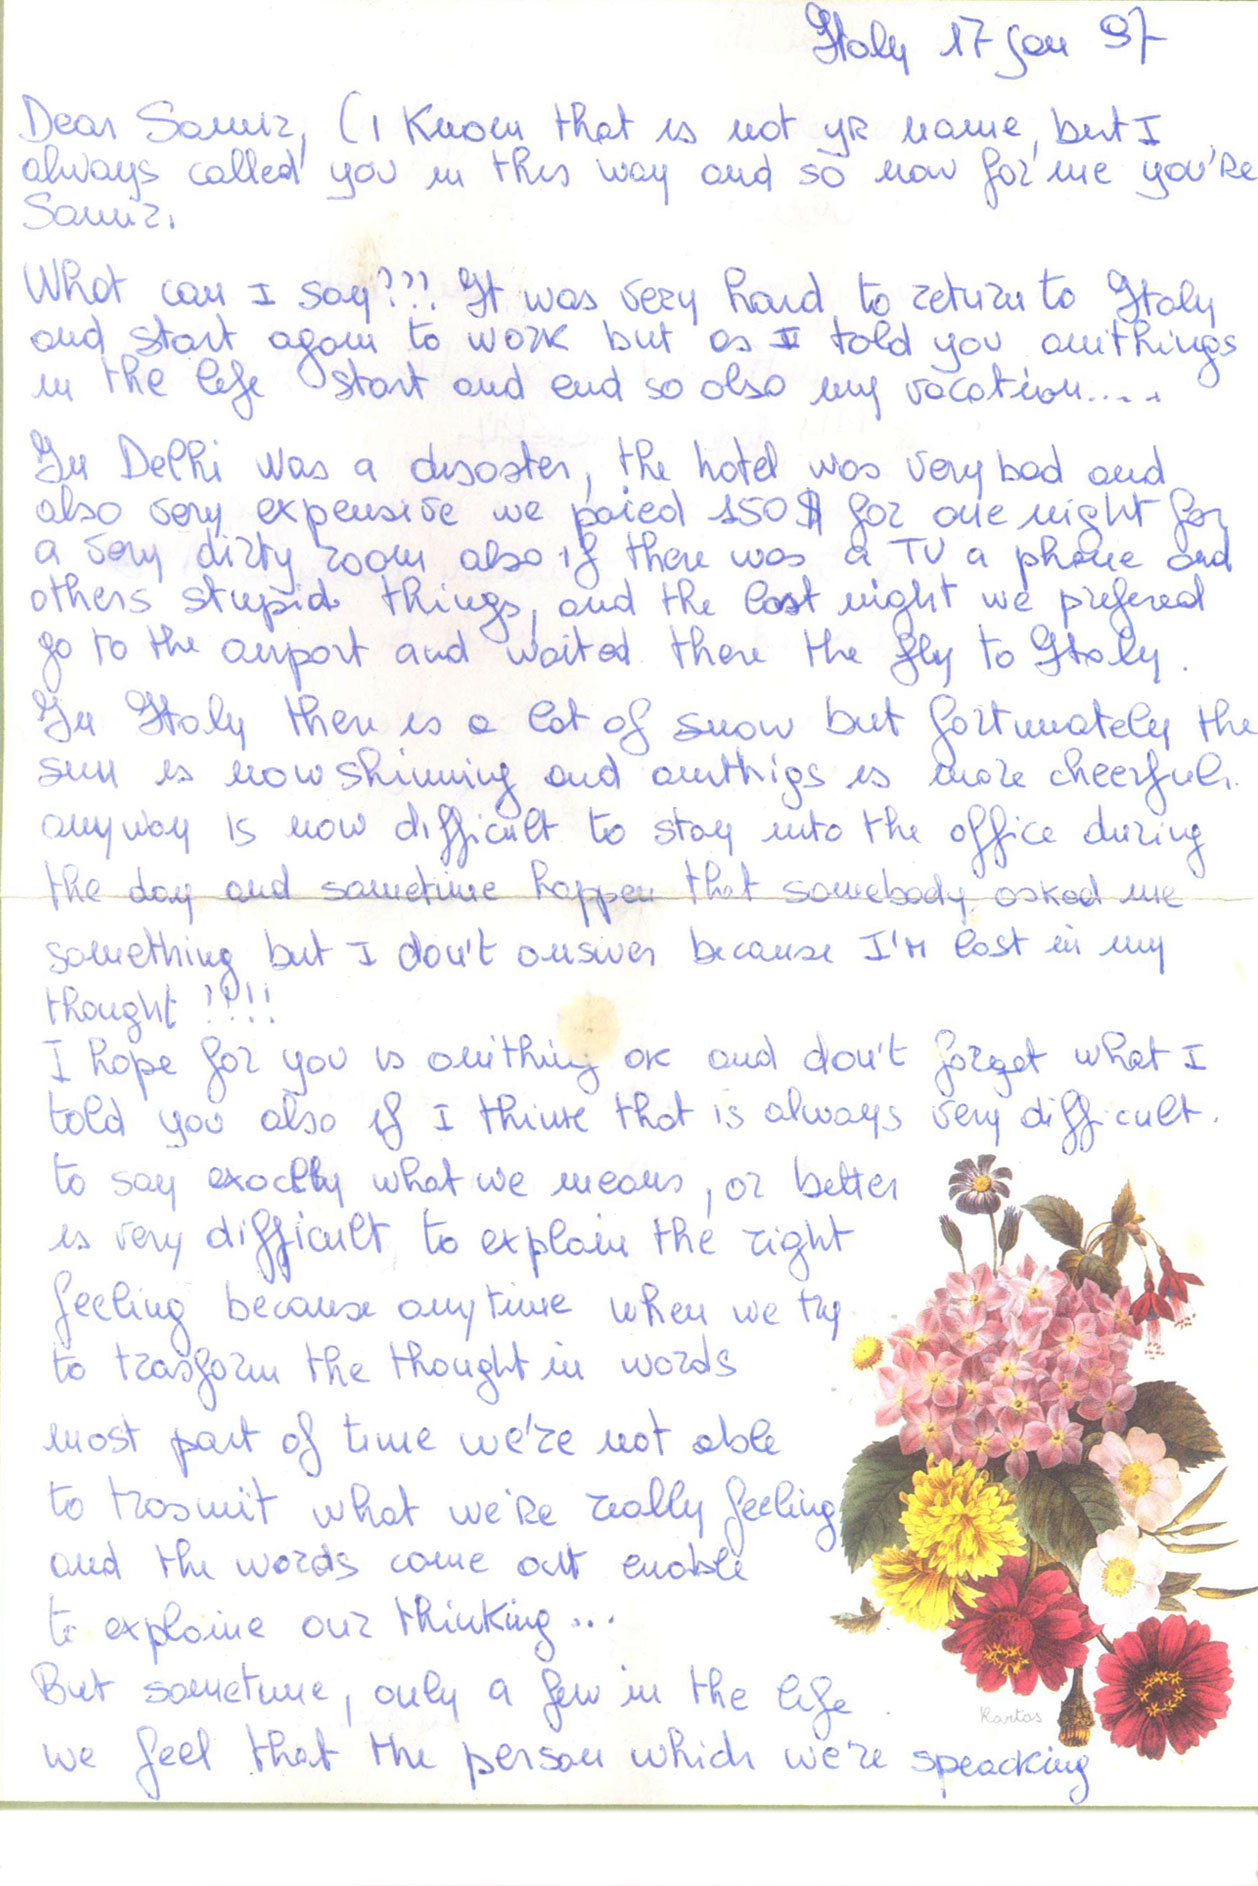 Italy 17 Jan 97
Dear Samir, (I Know that is not yR name, but I
always called you in this way and so now for me you're
Samir.
What can I say??? It was very hard to return to Italy
and start again to work but as I told you anithings
in the life start and end so also my vacation....
In Delhi was a disaster, the hotel was very bad and
also very expensive we paied 150$ for one night for
a very dirty room also if there was a TV a phone and
others stupid things, and the last night we prefered
go to the airport and waited there the fly to Italy.
In Italy there is a lot of snow but fortunately the
sun is now shinning and anithigs is more cheerful.
anyway is now difficult to stay into the office during
the day and sometime happen that somebody asked me
something but I don't answer because I'm lost in my
thought!!!!
I hope for you is anithing ok and don't forget what I
told you also if I think that is always very difficult.
to say exactly what we means, or better
is very difficult to explain the right
feeling because anytime when we try
to trasform the thought in words
most part of time we're not able
to trasmit what we're really feeling
and the words came out enable
to explaine our thinking...
But sometime, only a few in the life
we feel that the person which we're speacking
Kartos